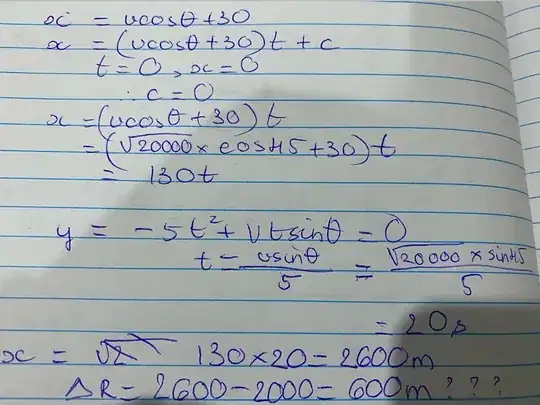 ẋ = vcosθ+30
x = (vcosθ+30)t + c
t=0, x=0
∴ c = 0
x = (vcosθ+30)t
= (√20000 × cos45+30)t
= 130t
y = -5t² + Vtsinθ = 0
t = vsinθ/5 = √20000 × sin45/5
= 20s
x = √2 130×20 = 2600m
ΔR = 2600-2000 = 600m ? ? ?